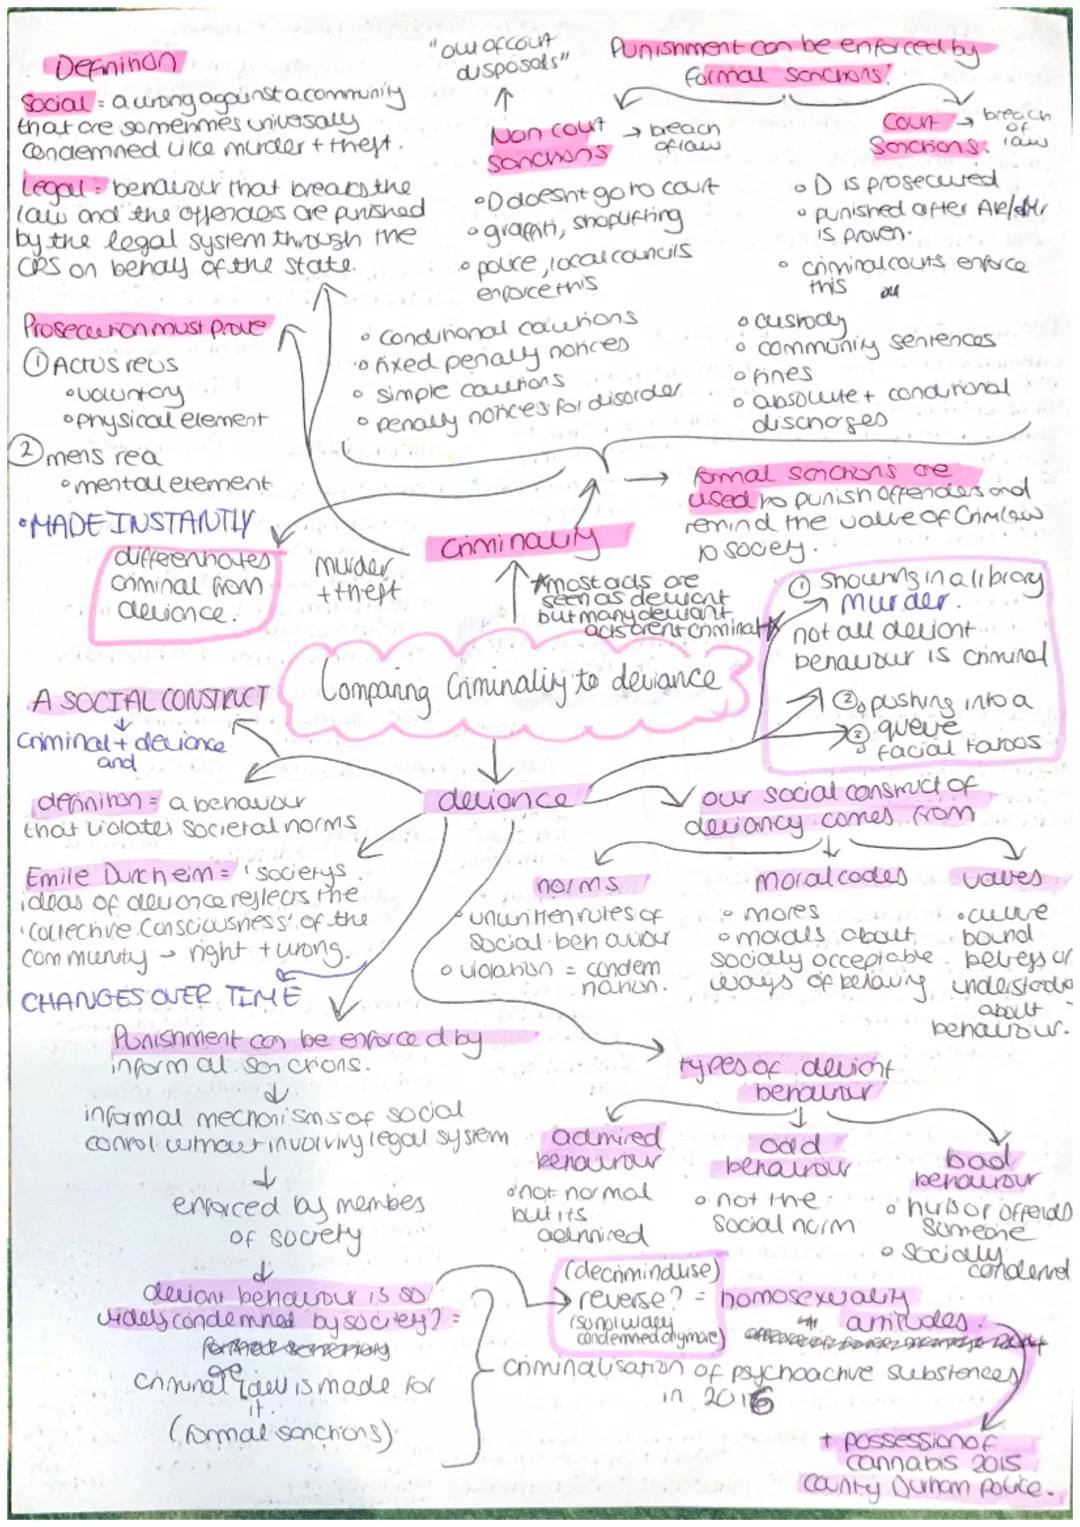 Definition
Social = a wrong against a community
that are sometimes universaly
condemned like murder + theft.
Legal = behaviour that breaks the
law and the offenders are punished
by the legal system through the
CPS on behalf of the state.
Prosecution must prove
① Actus reus
• voluntary
• physical element
② mens rea
• mental element
• MADE INSTANTLY
differentiates
criminal from
deviance.
"out of court
disposals"
Punishment can be enforced by
formal sanctions!
Non court
sanctions
→ breach
of law
• D doesnt go to court
• graffiti, shoplifting
• police, local councils
enforce this
• conditional cautions
• fixed penalty notices
• simple cautions
• penalty notices for disorder
Court
Sanctions.
→ breach
of
law
• D is prosecuted
• punished after AR/MR
is proven.
• criminal courts enforce
this
• custody
• community sentences
• fines
• absolute + conditional
discharges
→ formal sanctions are
used to punish offenders and
remind the value of Crim law
to society.
Criminality
murder
+ theft
*most acts are
seen as deviant
but many deviant
acts arent criminal*
① Shouting in a library
murder.
not all deviant
behaviour is criminal
② pushing into a
queue
③ facial tattoos
Comparing Criminality to deviance
A SOCIAL CONSTRUCT
Criminal + deviance
and
definition = a behaviour
that violates societal norms
Emile Durcheim = 'societys
ideas of deviance reflects the
'collective consciousness' of the
community → right + wrong.
CHANGES OVER TIME
deviance
our social construct of
deviancy comes from
norms
• unwritten rules of
social behaviour
• violation = condem
nation.
moral codes
• mores
• morals about
socially acceptable
ways of behaving
values
• culture
bound
beliefs or
understanding
about
behaviour.
Punishment can be enforced by
informal sanctions.
informal mechanisms of social
control without involving legal system
enforced by members
of society
deviant behaviour is so
widely condemned by society? =
criminal law is made for
it.
(formal sanctions)
types of deviant
behaviour
admired
behaviour
• not normal
but its
admired
odd
behaviour
• not the
social norm
bad
behaviour
• hurts or offends
someone
• socially
condemned
(decriminalise)
reverse? = homosexuality
(so not widely
condemned anymore)
attitudes.
criminalisation of psychoactive substances
in 2016
+ possession of
cannabis 2015
County Durham police.